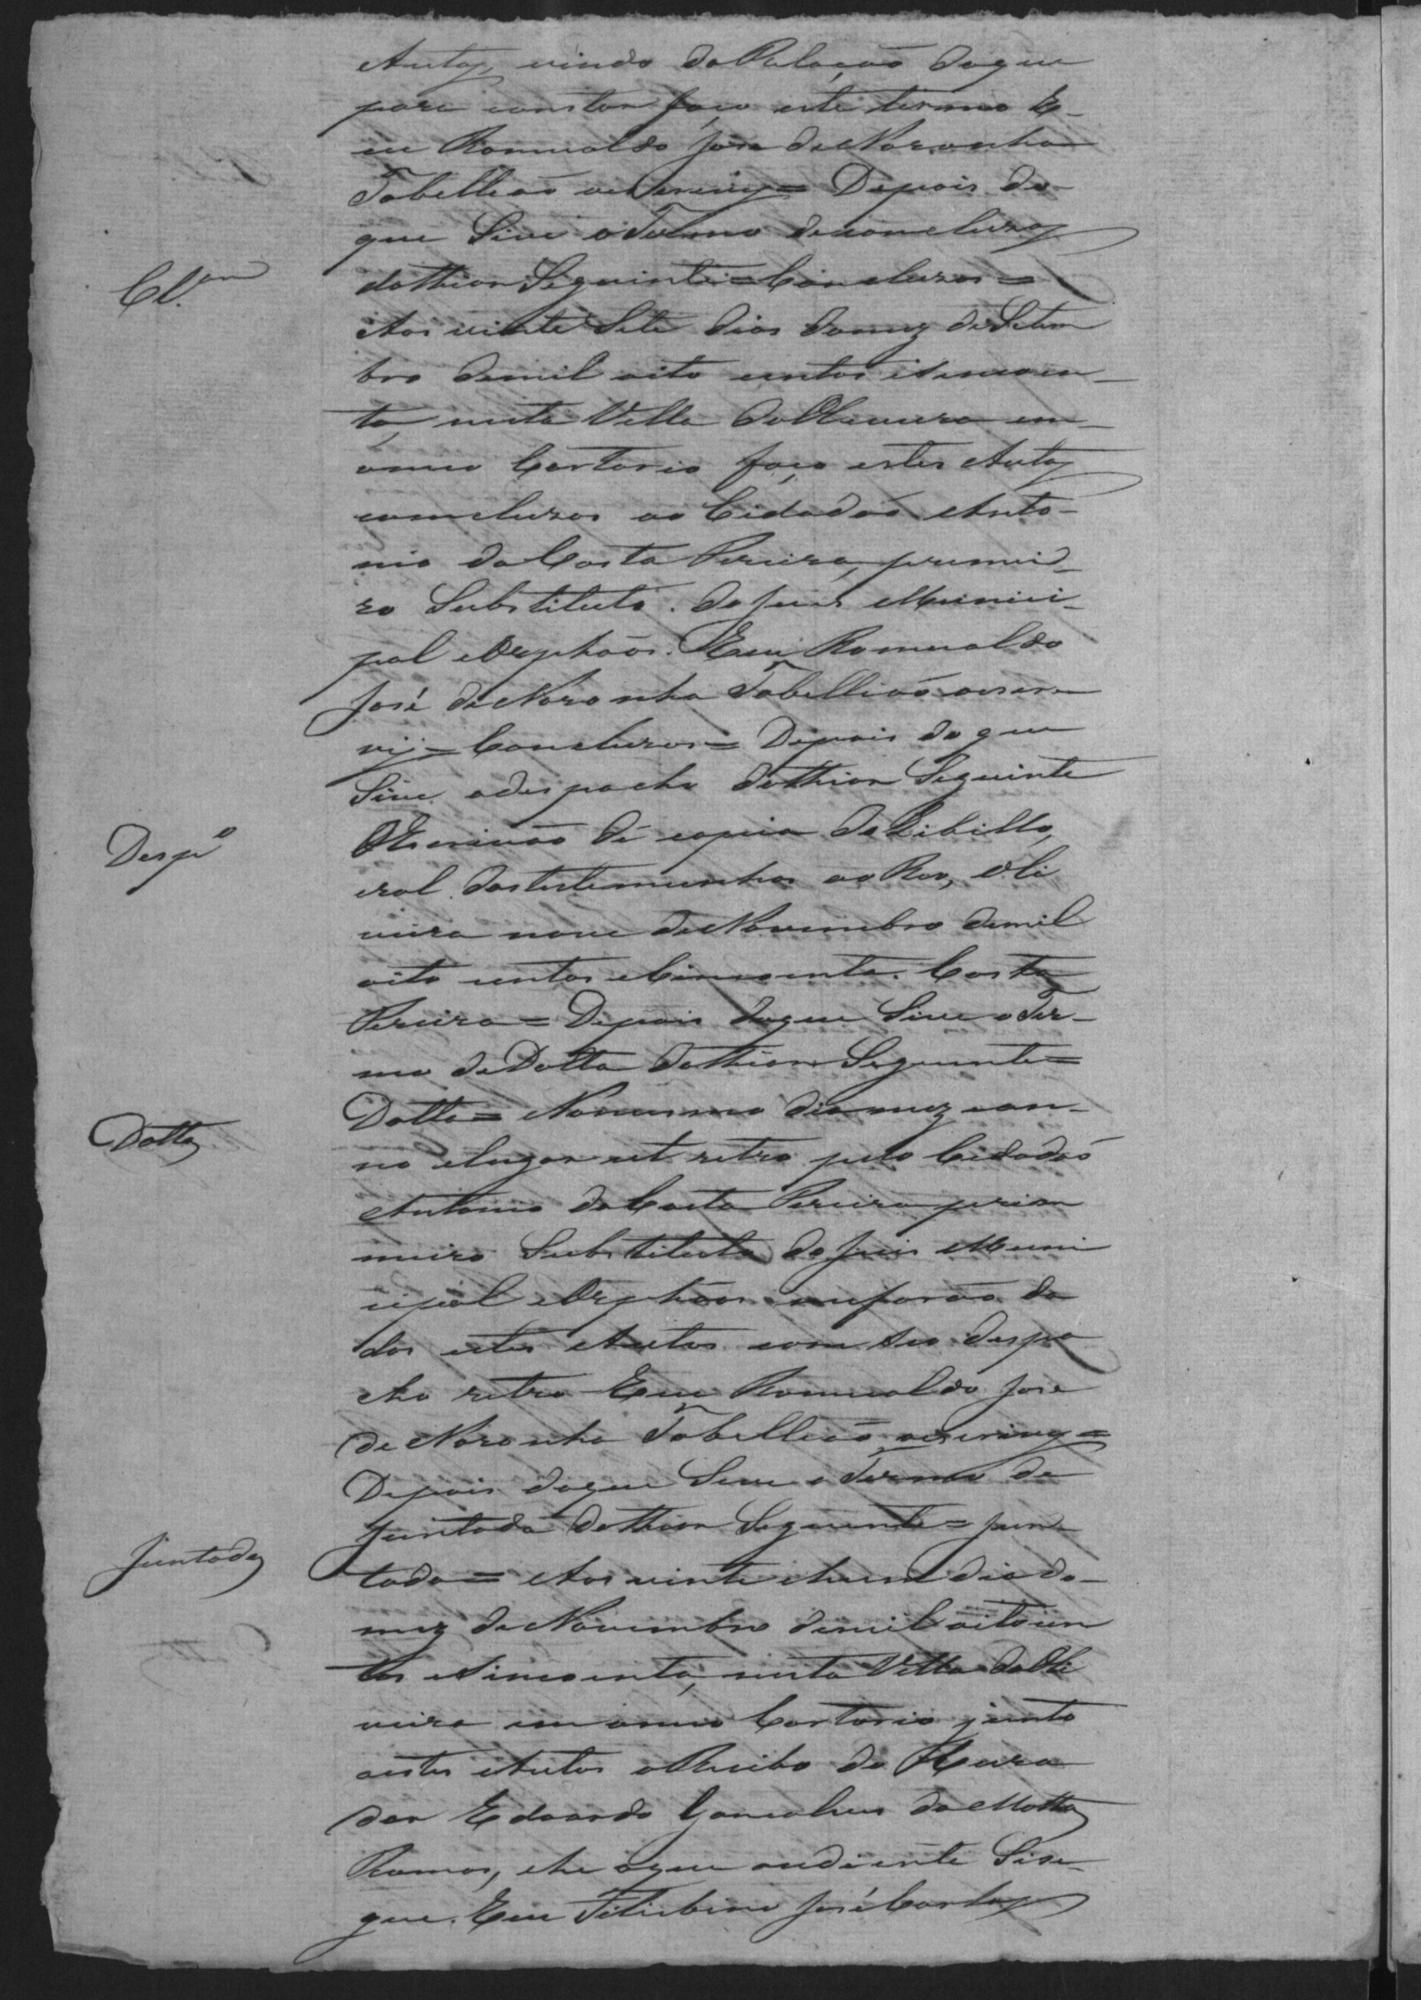 Autos, vindo da Relação doque
para constar faço este termo E-
eu Romualdo José de Noronha
Tabellião oescrevy = Depois do
que Sive o Termo deconcluzoz
dotheor Seguinte = Concluzos =
Cl.am
Aos vinte Sete dias domez deSetem
bro demil oito centos eSincoen-
ta, nesta Villa daOliveira em
omeo Cartorio faço estes Autoz
concluzos ao Cidadão Anto-
nio da Costa Pereira, premei-
ro Substituto do Juis Munici-
pal eOrphãos. Eeu Romualdo
José de Noronha Tabellião oescre
vy = Concluzos = Depois do que
Sive o despacho dotheor Seguinte
Desp.o
OEscrivão dê copia do Libello,
erol dastestemunhas ao Reo, Oli
veira nove de Novembro demil
oito centos eCincoenta. Costa
Pereira = Depois doque Sive o Ter-
mo de Datta dotheor Seguinte =
Datta
Datta = Nomesmo dia mez ean-
no elugar ut retro pelo Cidadão
Antonio da Costa Pereira prim
meiro Substituto do Juis Muni
cipal eOrphãos meforão da
dos estes Autos com seo despa
cho retro Eeu Romualdo José
de Noronha Tabellião oescrevy =
Depois doque Seve o Termo de
Juntada dotheor Seguinte = Jun
Juntada
tada = Aos vinte ehum dias do
mez de Novembro demil oitocen
tos eSincoenta, nesta Villa daOli
veira em omeo Cartorio junto
aestes Autos o Recibo do
Edoardo Gonçalves da Motta
Ramos, he oque audiente Sise-
gue. Eeu José Cartoz